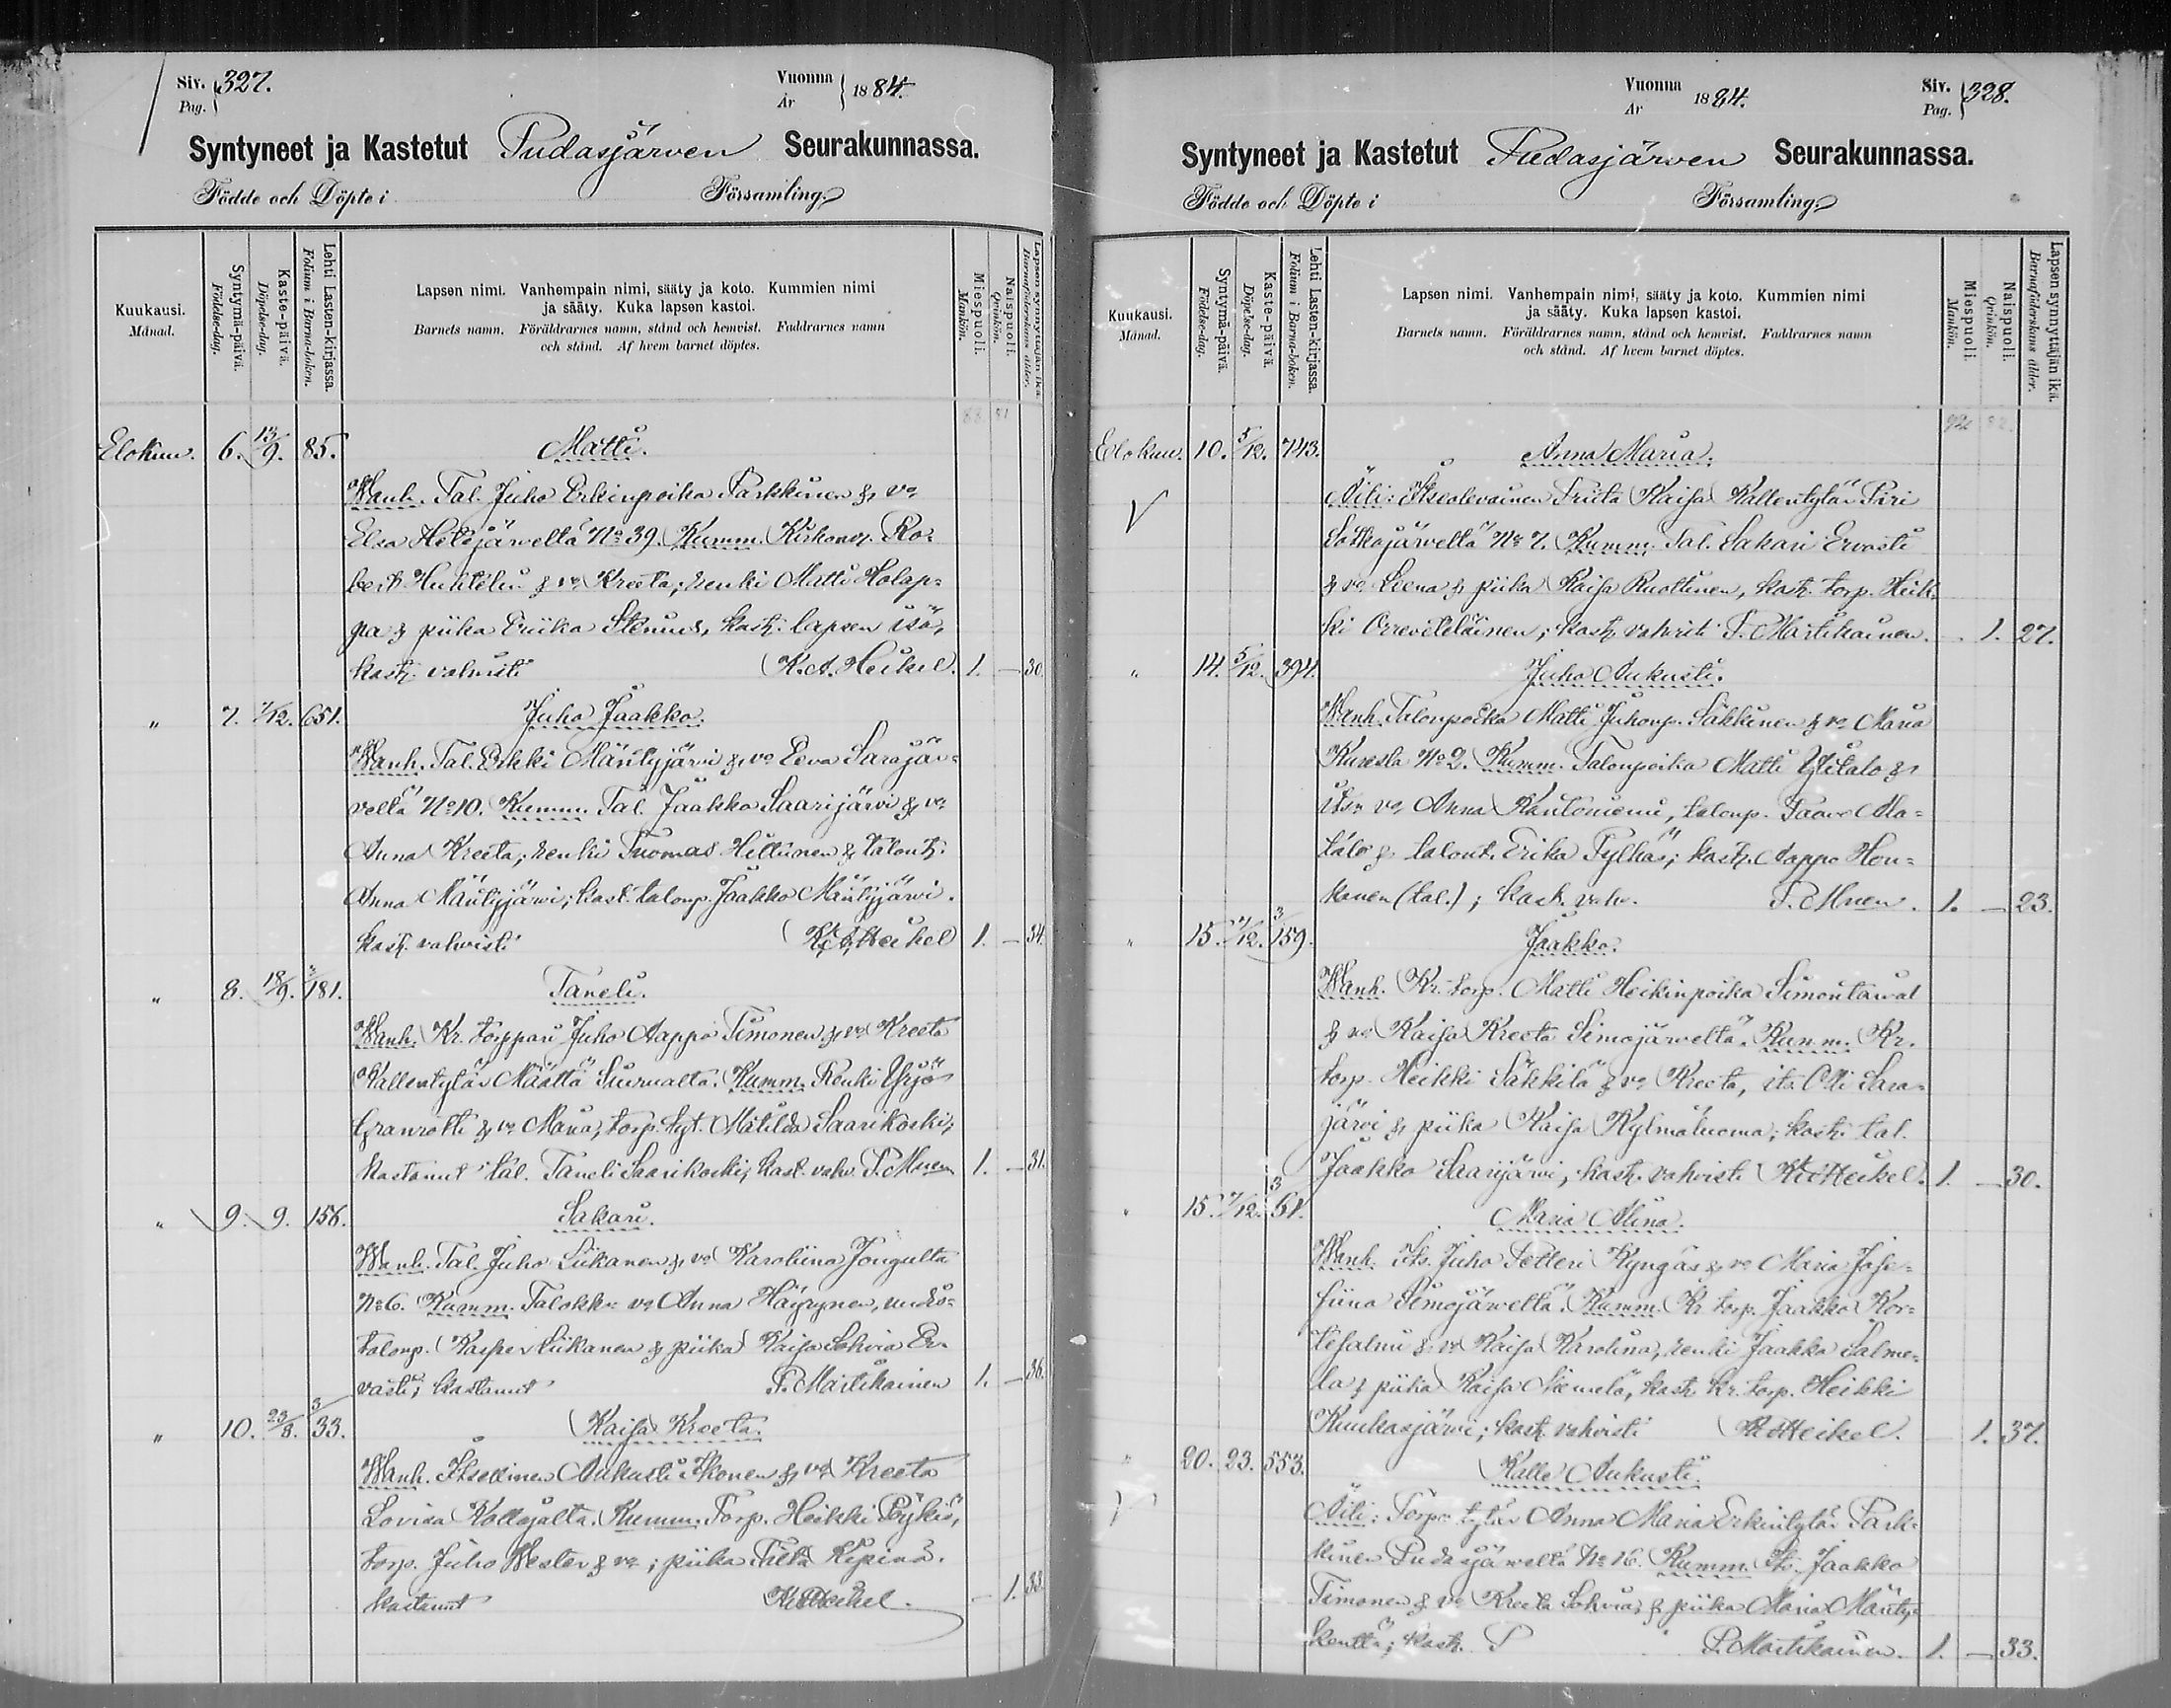 Siv. 327.
Pag.
Vuonna 1884.
År
Syntyneet ja Kastetut Pudasjärven Seurakunnassa.
Födde och Döpte i Församling.
Kuukausi.
Månad.
Syntymä-päivä.
Födelse-dag.
Kaste-päivä.
Döpelse-dag.
Lehti Lasten-kirjassa.
Folium i Barna-boken.
Lapsen nimi. Vanhempain nimi, sääty ja koto. Kummien nimi
ja sääty. Kuka lapsen kastoi.
Barnets namn. Föräldrarnes namn, stånd och hemvist. Faddrarnes namn
och stånd. Af hvem barnet döptes.
Miespuoli.
Mankön.
Naispuoli.
Qvinkön.
Lapsen synnyttäjän ikä.
Barnaföderskans ålder.
Elokuu. 6. 13/9. 85. Matti.
Wanh. Tal. Juho Erkinpoika Parkkinen & vo
Elsa Hetejärveltä No 39. Kumm. Kirkonp. Ro-
bert Huhtelin & vo Kreeta; renki Matti Holap-
pa & piika Eriika Stenius, kast. lapsen isä,
kast. vahvisti K. A. Heikel. 1. — 30.
" 7. 7/12. 651. Juho Jaakko.
Wanh. Tal. Erkki Mäntyjärvi & vo Eeva Sarajär-
veltä No 10. Kumm. Tal. Jaakko Saarijärvi & vo
Anna Kreeta; renki Tuomas Hiltunen & talont.
Anna Mäntyjärvi; kast. talonp. Jaakko Mäntyjärvi.
kast. vahvisti K. A. Heikel 1. — 34.
" 8. 18/9. 181. Taneli.
Wanh. Kr. torppari Juho Aappo Timonen & vo Kreeta
Kallentytär Määttä Siurualta. Kumm. Renki Yrjö
Granrotti & vo Maria, torp. tyt. Matilda Saarikoski;
kastanut tal. Taneli Saarikoski; kast. vahv. P. Mnen 1. — 31.
" 9. 9. 156. Sakari.
Wanh. Tal. Juho Liikanen & vo Karoliina Jongulta
No 6. Kumm. Talokk. vo Anna Häyrynen, uudis-
talonp. Kasper Liikanen & piika Kaisa Sohvia Er-
vasti; kastanut P. Martikainen 1. — 36.
" 10. 23/8. 3/33. Kaisa Kreeta.
Wanh. Itsellinen Aukusti Ikonen & vo Kreeta
Lovisa Kollajalta. Kumm. Torp. Heikki Pöykiö,
torp. Juho Wester & vo; piika Kepinä.
kastanut K. A. Heikel. — 1. 33.
Vuonna 1884.
År
Siv. 328.
Pag.
Syntyneet ja Kastetut Pudasjärven Seurakunnassa.
Födde och Döpte i Församling.
Kuukausi.
Månad.
Syntymä-päivä.
Födelse-dag.
Kaste-päivä.
Döpelse-dag.
Lehti Lasten-kirjassa.
Folium i Barna-boken.
Lapsen nimi. Vanhempain nimi, sääty ja koto. Kummien nimi
ja sääty. Kuka lapsen kastoi.
Barnets namn. Föräldrarnes namn, stånd och hemvist. Faddrarnes namn
och stånd. Af hvem barnet döptes.
Miespuoli.
Mankön.
Naispuoli.
Qvinkön.
Lapsen synnyttäjän ikä.
Barnaföderskans ålder.
Elokuu. 10. 5/12. 743. Anna Maria.
Äiti: Itsealevainen Kaisa Kallentytär Piri
Sotkajärveltä No 7. Kumm. Tal. Sakari Ervasti
& vo Leena & piika Kaisa Ruottinen, kast. torp. Heik-
ki; kast. vahvisti P. Martikainen. — 1. 27.
" 14. 5/12. 394. Juho Aukusti.
Wanh. Talonpoika Matti Juhonp. Säkkinen & vo Maria
No 2. Kumm. Talonpoika Matti Ylitalo &
its. vo Anna Kantoniemi, talonp. Paavo Ala-
talo & talont. Erika Tylhäs; kast. Aappo Hon-
kanen (tal.); kast. vahv. P. Mnen. 1. — 23.
" 15. 7/12. 3/159. Jaakko.
Wanh. Kr. torp. Matti Heikinpoika Simontaival
& vo Kaisa Kreeta Simojärveltä. Kumm. Kr.
torp. Heikki Säkkilä & vo Kreeta, its. Olli Sara-
järvi & piika Kaisa Kylmäluoma; kast. tal.
Jaakko Saarijärvi, kast. vahvisti K. A. Heikel. 1. — 30.
" 15. 7/12. 3/61. Maria Alina.
Wanh. Its. Juho Petteri Kyngäs & vo Maria Jose-
fiina Simojärveltä. Kumm. Kr. torp. Jaakko Kor-
tesalmi & vo Kaisa Karolina, renki Jaakko Salme-
la & piika Kaisa Niemelä, kast. kr. torp. Heikki
Kuukasjärvi; kast. vahvisti K. A. Heikel. — 1. 37.
" 20. 23. 553. Kalle Aukusti.
Äiti: Torp. tytär Anna Maria Erkintytär Park-
kinen Pudasjärveltä No 16. Kumm. Its. Jaakko
Timonen & vo Kreeta Sohvia; & piika Maria Mänty-
kenttä; kast. P. Martikainen. 1. — 33.